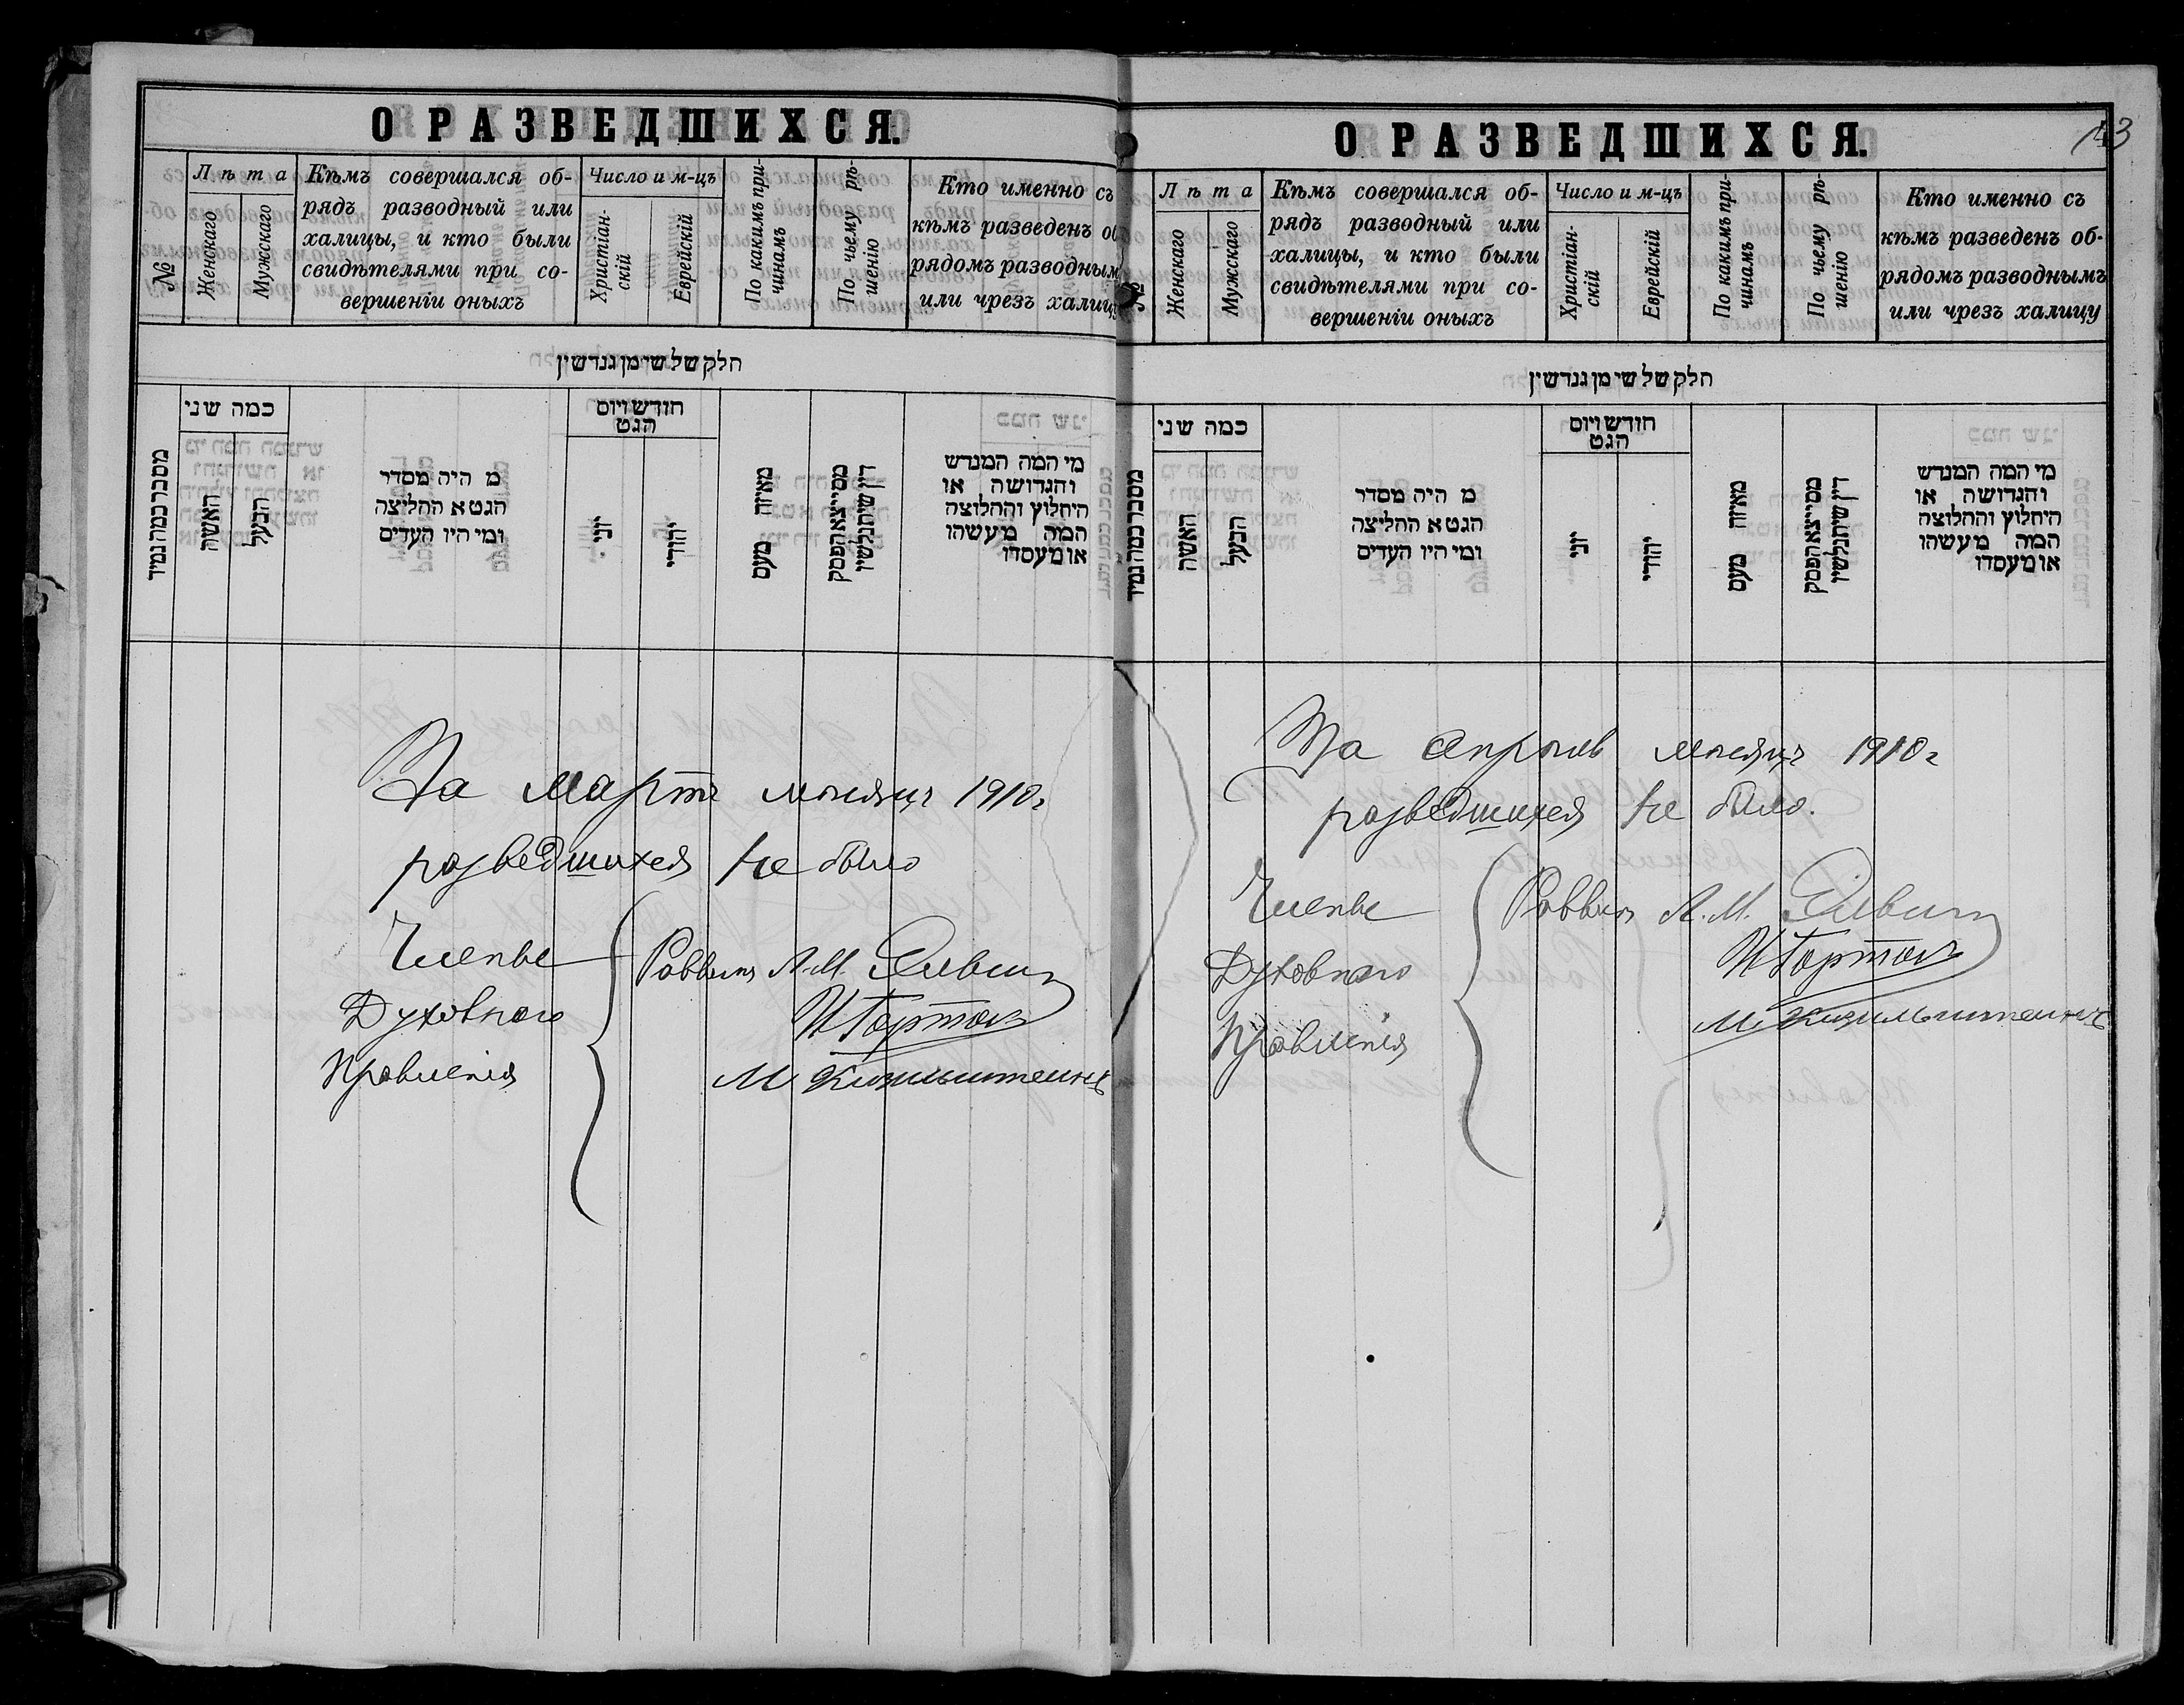 О РАЗВЕДШИХСЯ.
№
Лѣта
Женскаго
Мужскаго
Кѣмъ совершался об-
рядъ разводный или
халицы, и кто были
свидѣтелями при со-
вершеніи оныхъ
Число и м-цъ
Христіан-
скій
Еврейскій
По какимъ при-
чинамъ
По чьему рѣ-
шенію
Кто именно съ
кѣмъ разведенъ об
рядомъ разводным
или чрезъ халиц
חלק של שי מן גנדשין
כמה שני
האשה
הבעל
מ היה מסדר
הגט א החליצה
ומי היו העדים
חודש ויום
הגט
יוני
יהודי
מאיזה טעם
מי המה המגדש
והגדושה או
היחלוץ וההלוצה
המה מעשהו
או מעסדו
За Мартъ мѣсяцъ 1910г
разведшихся не было
Члены
Духовнаго
Правленія
Раввинъ А.М.
И Гортов
М Кизильштейнъ
О РАЗВЕДШИХСЯ.
143
Лѣта
Женскаго
Мужскаго
Кѣмъ совершался об-
рядъ разводный или
халицы, и кто были
свидѣтелями при со-
вершеніи оныхъ
Число и м-цъ
Христіан-
скій
Еврейскій
По какимъ при-
чинамъ
По чьему рѣ-
шенію
Кто именно съ
кѣмъ разведенъ об-
рядомъ разводнымъ
или чрезъ халицу
חלק של שי מן גנדשין
כמה שני
האשה
הבעל
מ היה מסדר
הגט א החליצה
ומי היו העדים
חודש ויום
הגט
יוני
יהודי
מאיזה טעם
מי המה המגדש
והגדושה או
היחלוץ וההלוצה
המה מעשהו
או מעסדו
За Апрѣль мѣсяцъ 1910г
разведшихся не было.
Члены
Духовнаго
Правленія
Раввинъ А.М.
И Гортов
М Кизильштейнъ